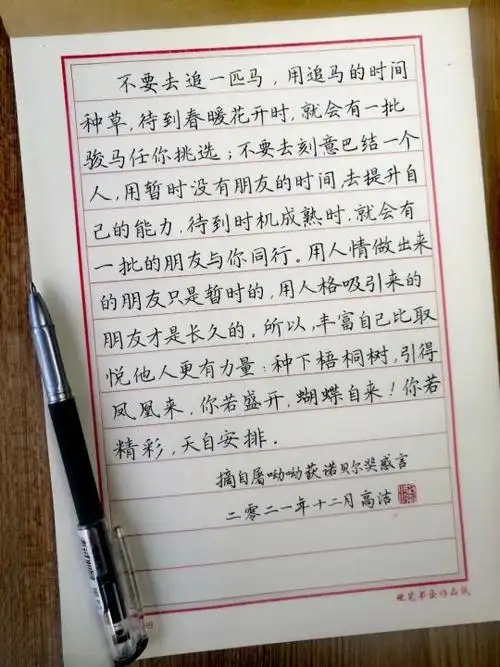 不要去追一匹马，用追马的时间
种草，待到春暖花开时，就会有一批
骏马任你挑选；不要去刻意巴结一个
人，用暂时没有朋友的时间，去提升自
己的能力，待到时机成熟时，就会有
一批的朋友与你同行。用人情做出来
的朋友只是暂时的，用人格吸引来的
朋友才是长久的，所以，丰富自己比取
悦他人更有力量：种下梧桐树，引得
凤凰来，你若盛开，蝴蝶自来！你若
精彩，天自安排。
摘自屠呦呦获诺贝尔奖感言
二零二一年十二月高洁
硬笔书法作品纸